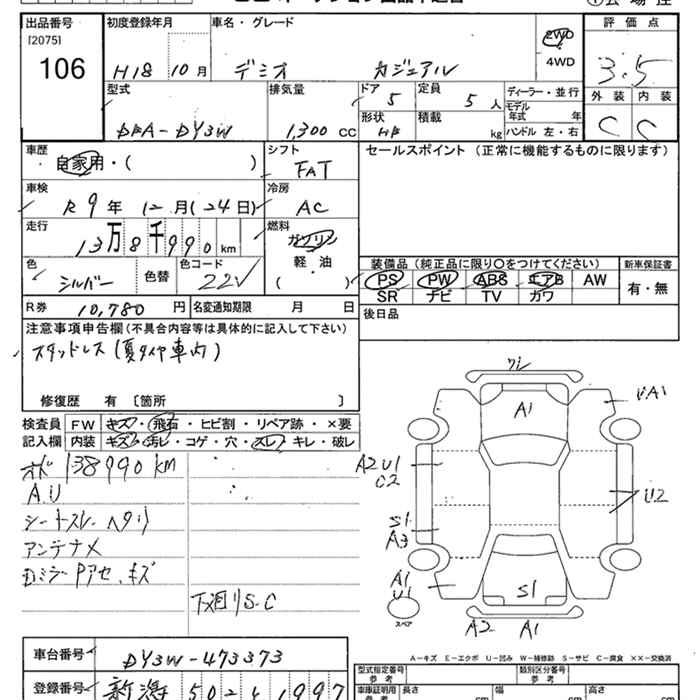 出品番号
[2075]
106
初度登録年月
H18 10月
車名・グレード
デミオ カジュアル
2WD
4WD
評価点
3.5
外装 内装
C C
型式
DBA-DY3W
排気量
1,300 CC
ドア
5
定員
5人
形状
HB
積載
kg
ディーラー・並行
モデル年式 年
ハンドル 左・右
車歴
自家用・( )
シフト
FAT
セールスポイント (正常に機能するものに限ります)
車検
R9年 12月(24日)
冷房
AC
走行
13万8千990km
燃料
ガソリン
軽・油
( )
色
シルバー
色替
色コード
22V
装備品 (純正品に限り〇をつけてください)
PS PW ABS エアB AW
SR ナビ TV カワ
新車保証書
有・無
R券 10,780円
名変通知期限 月 日
後日品
注意事項申告欄(不具合内容等は具体的に記入して下さい)
スタッドレス(夏タイヤ車内)
修復歴 有 〔箇所 〕
検査員
記入欄
FW キズ・飛石・ヒビ割・リペア跡・×要
内装 キズ・汚レ・コゲ・穴・スレ・キレ・破レ
オド 138990km
A.U
シートスレ・ヘタリ
アンテナX
DミラーPアセ、キズ
下廻りS-C
ワレ
A1
A2U1
C2
U2
S1
A3
A1
U1
スペア
S1
A2 A1
A―キズ E―エクボ U―凹み W―補修跡 S―サビ C―腐食 XX―交換済
車台番号
DY3W-473373
登録番号
新潟 502 1997
型式指定番号
参考
類別区分番号
参考
車庫証明用
参考
長さ cm
幅 cm
高さ cm